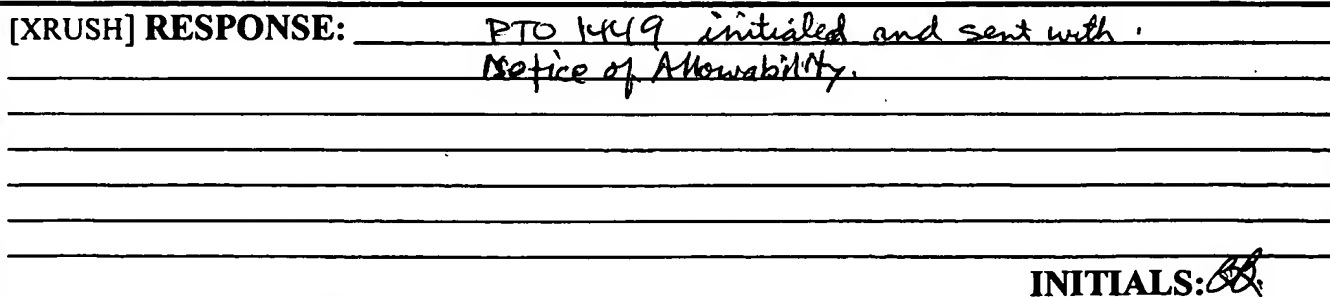 [XRUSH] RESPONSE: PTO 1449 initialed and sent with.
Notice of Allowability.
INITIALS: